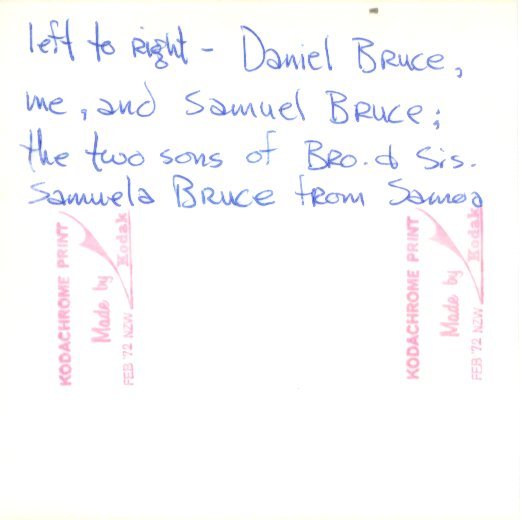 left to right - Daniel Bruce,
me, and Samuel Bruce;
the two sons of Bro. & Sis.
Samuela Bruce from Samoa
KODACHROME PRINT
Made by Kodak
FEB '72 NZW
KODACHROME PRINT
Made by Kodak
FEB '72 NZW